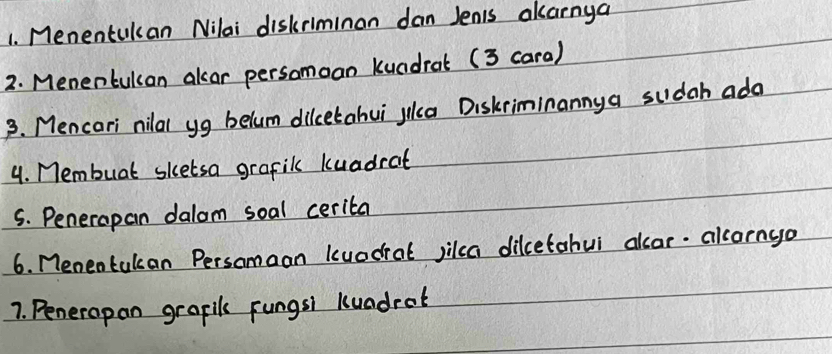 1. Menentukan Nilai diskriminan dan Jenis akarnya
2. Menentukan akar persamaan kuadrat (3 cara)
3. Mencari nilai yg belum diketahui jika Diskriminannya sudah ada
4. Membuat sketsa grafik kuadrat
5. Penerapan dalam soal cerita
6. Menentukan Persamaan kuadrat jika diketahui akar-akarnya
7. Penerapan grafik Fungsi Kuadrat